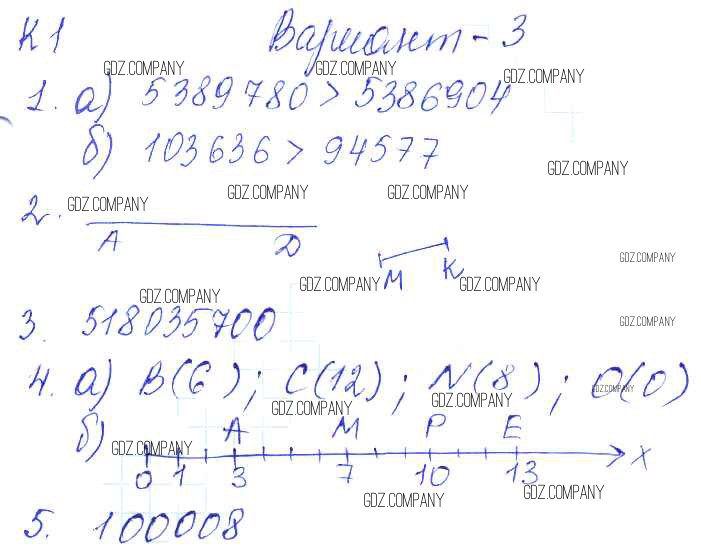 К1 Вариант - 3
GDZ.COMPANY GDZ.COMPANY GDZ.COMPANY
1. а) 5389780 > 5386904
б) 103636 > 94577
GDZ.COMPANY
GDZ.COMPANY GDZ.COMPANY GDZ.COMPANY
2.
A D
M K
GDZ.COMPANY
GDZ.COMPANY GDZ.COMPANY GDZ.COMPANY
3. 518035700
GDZ.COMPANY
4. а) B(6); C(12); N(8); O(0)
GDZ.COMPANY GDZ.COMPANY GDZ.COMPANY
б) A M P E
GDZ.COMPANY
0 1 3 7 10 13 x
GDZ.COMPANY GDZ.COMPANY
5. 100008